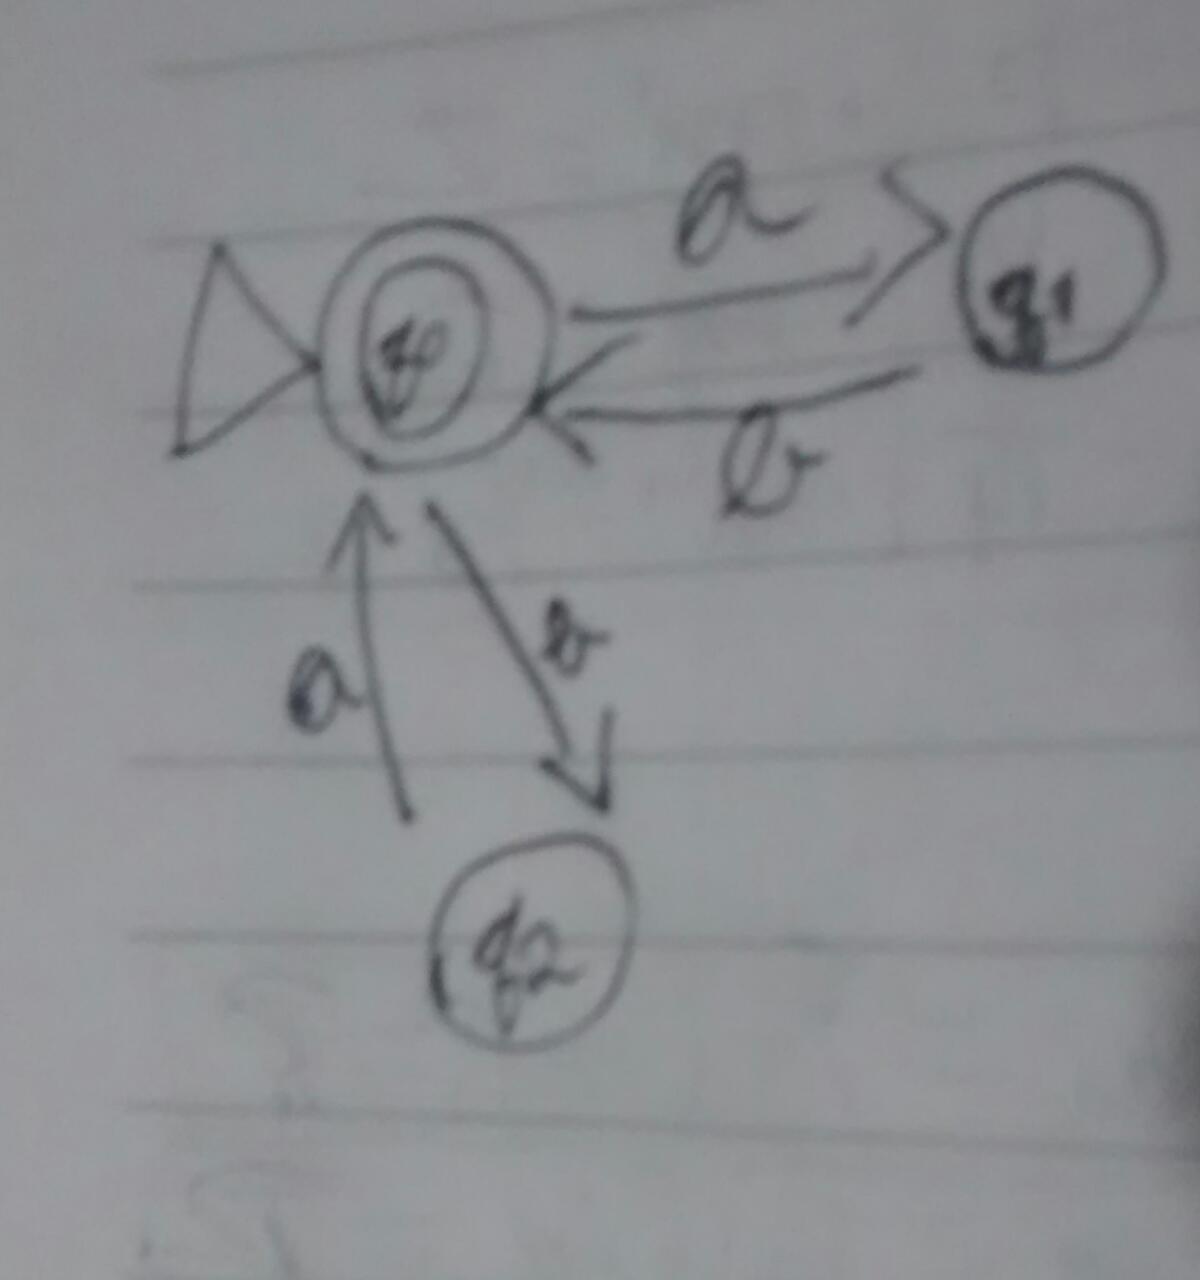 a
q0
q1
b
a
b
q2